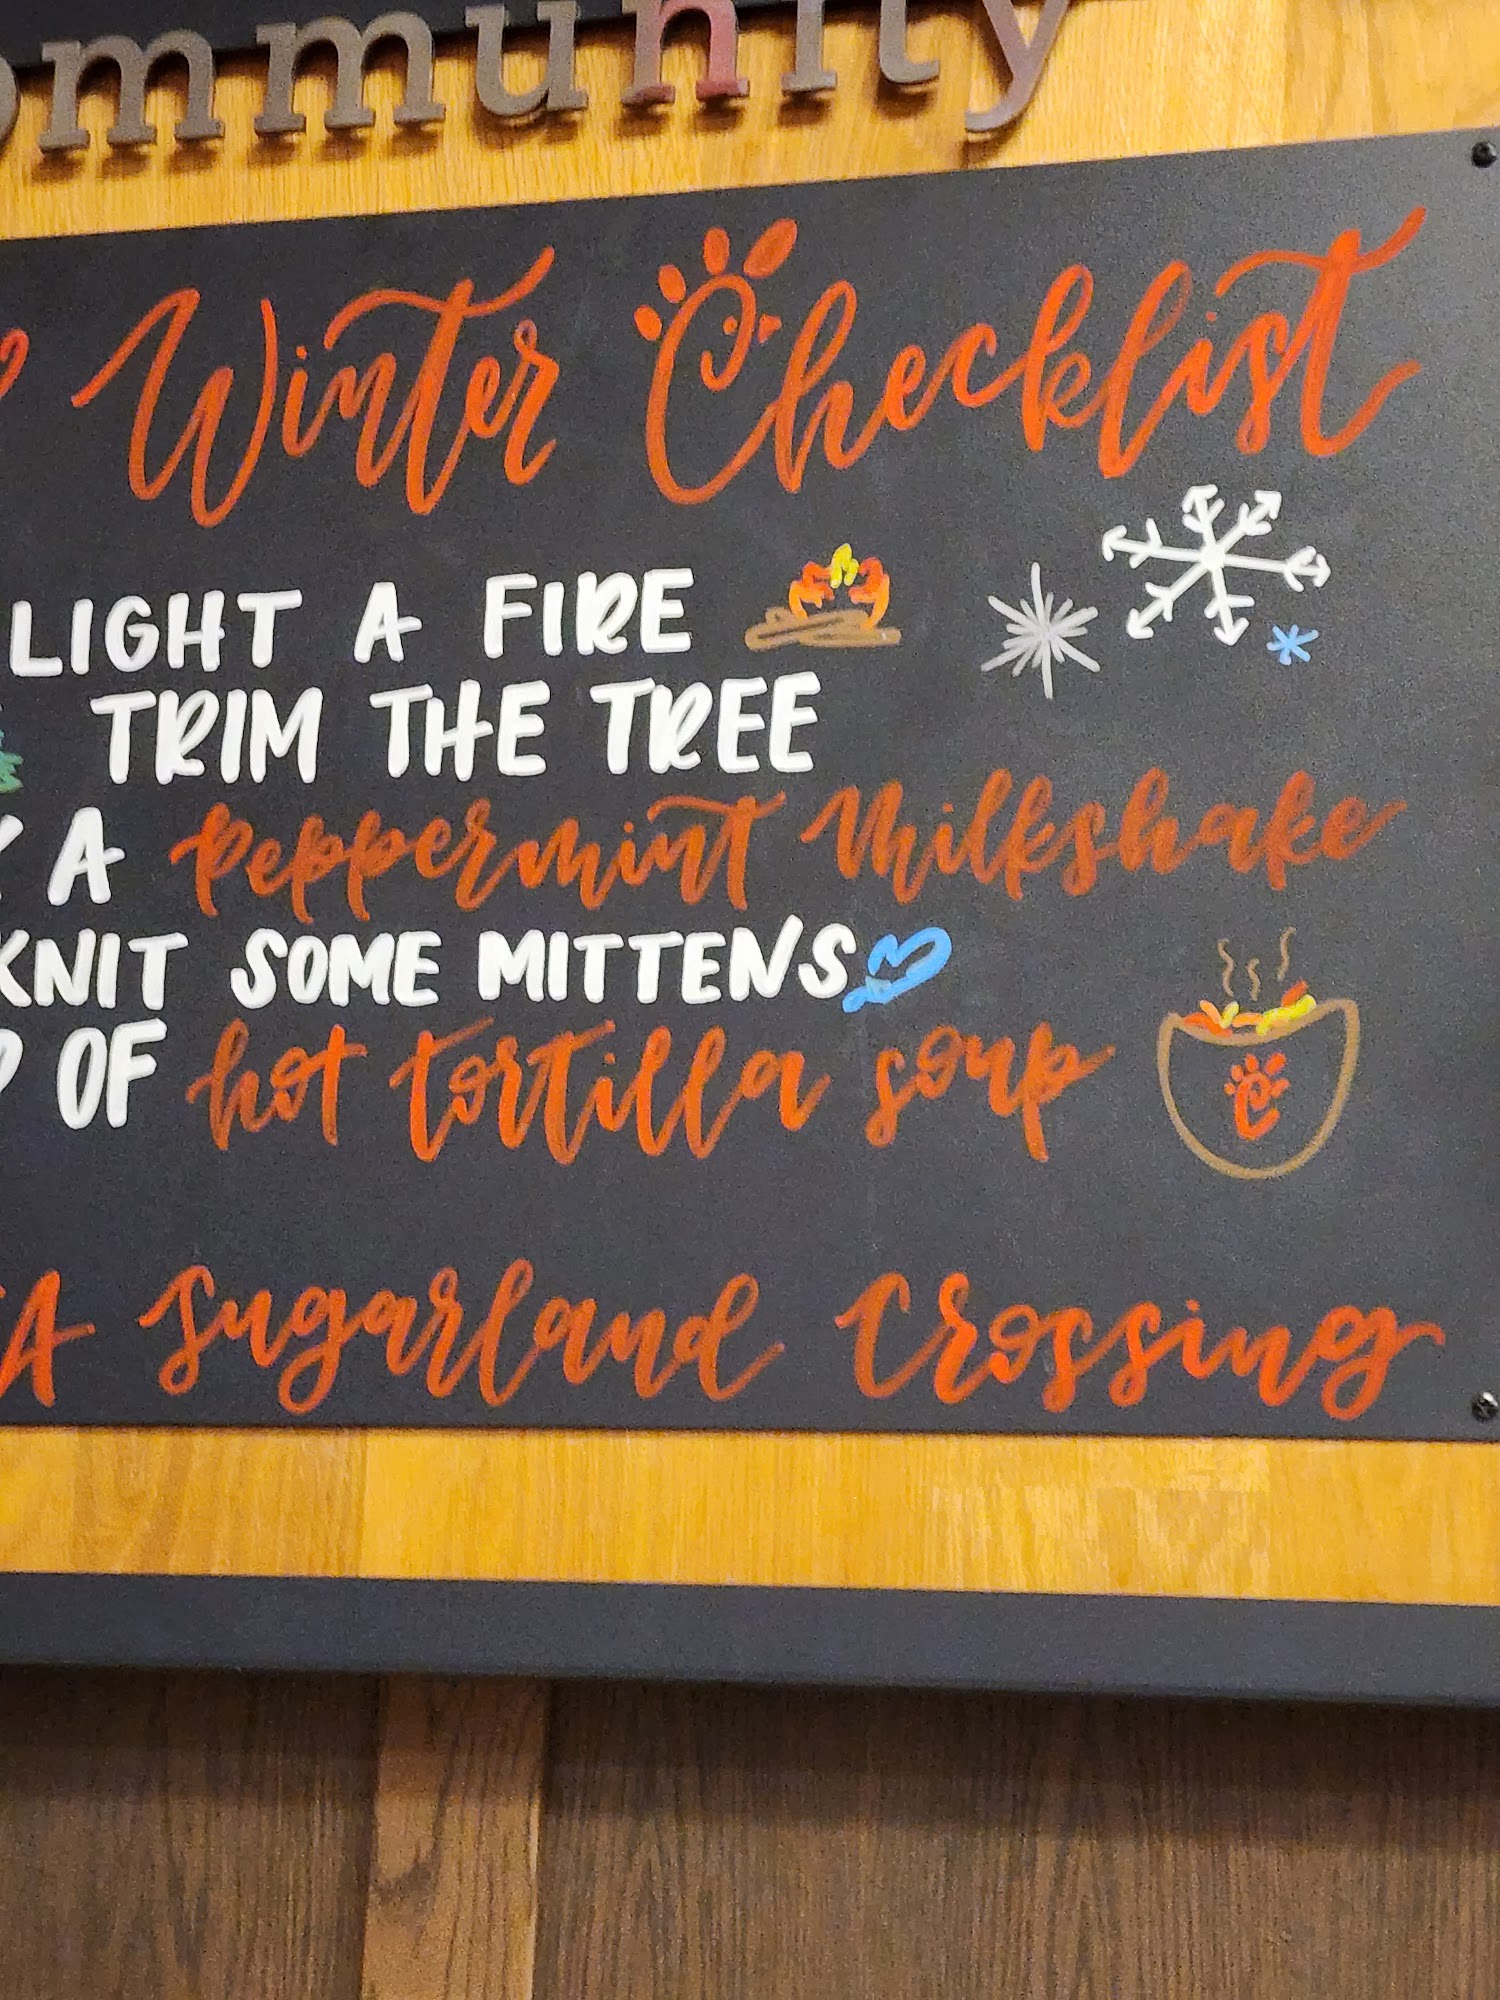 ommunity
Winter Checklist
LIGHT A FIRE
TRIM THE TREE
A Peppermint Milkshake
KNIT SOME MITTENS
OF hot tortilla soup
A Sugarland Crossing